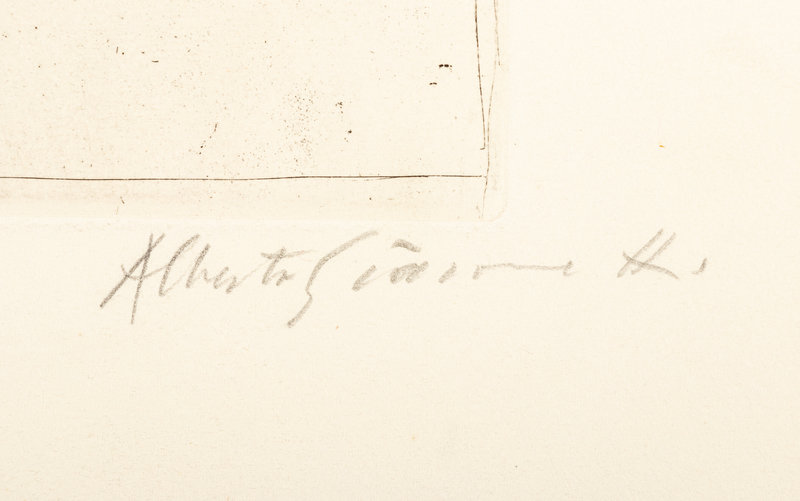 Alberto Giacometti